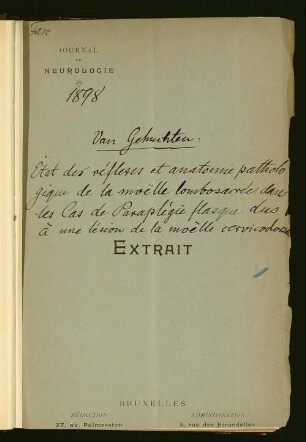 JOURNAL
DE
NEUROLOGIE
1898
Van Gehuchten:
État des réflexes et anatomie patholo
gique de la moëlle lombosacrée dans
les Cas de Paraplégie flasque dus
à une lésion de la moëlle cervicodorsale
EXTRAIT
BRUXELLES
RÉDACTION: ADMINISTRATION:
27, av. Palmerston 3, rue des Hirondelles